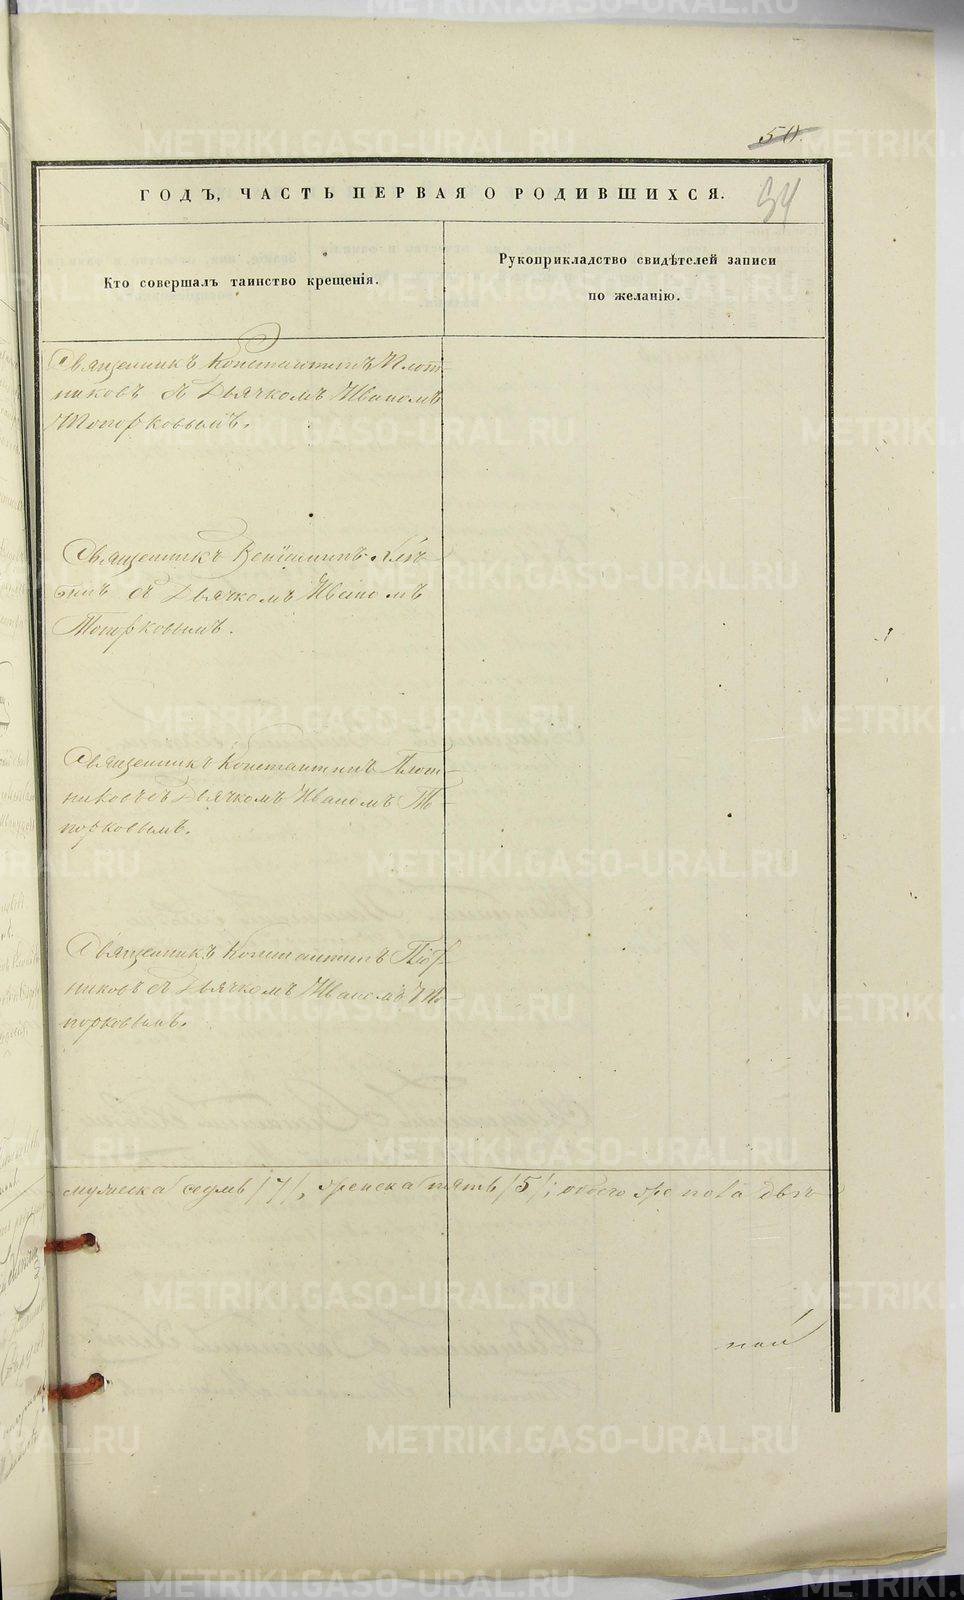 50.
54
ГОДЪ, ЧАСТЬ ПЕРВАЯ О РОДИВШИХСЯ.
Кто совершалъ таинство крещенія.
Рукоприкладство свидѣтелей записи
по желанію.
Священникъ Константинъ Плот-
никовъ съ Дьячкомъ Иваномъ
Топорковымъ.
Священникъ Веніаминъ
съ Дьячкомъ Иваномъ
Топорковымъ.
Священникъ Константинъ Плот-
никовъ съ Дьячкомъ Иваномъ То-
порковымъ.
Священникъ Константинъ Плот-
никовъ съ Дьячкомъ Иваномъ То-
порковымъ.
мужеска седмь /7/, женска пять /5/; обоего же пола двѣ-
METRIKI.GASO-URAL.RU